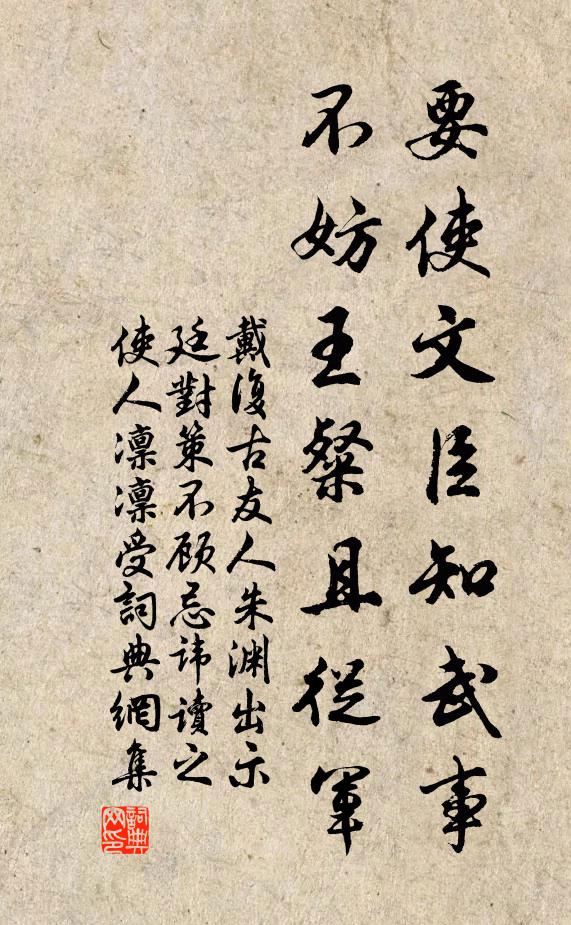 要使文臣知武事
不妨王粲且從軍
戴復古友人朱淵出示
廷對策不顾忌諱讀之
使人凛凛受詞典網集
詞典网印